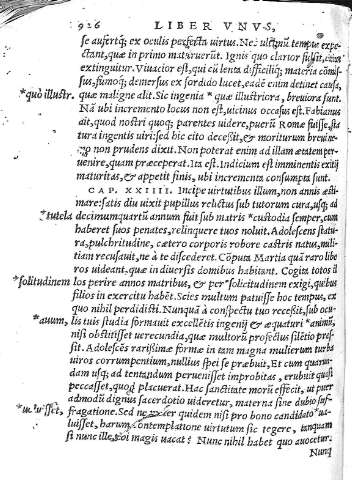 926 LIBER VNVS,
se aufertq; ex oculis perfecta uirtus. Nec ultimū tempus expe-
ctant, quæ in primo maturuerūt. Ignis quo clarior fulsit, citius
extinguitur. Viuacior est, qui cū lenta difficiliq; materia cōmis-
sus, fumoq; demersus ex sordido lucet, eadē enim detinet causa,
*quò illustr. quæ maligne alit. Sic ingenia * quæ illustriora, breuiora sunt.
Nā ubi incremento locus non est, uicinus occasus est. Fabianus
ait, quod nostri quoq; parentes uidere, puerū Romæ fuisse, sta
tura ingentis uiri: sed hic cito decessit, & moriturum breui ne-
mo non prudens dixit. Non poterat enim ad illam ætatem per-
uenire, quam præceperat. Ita est. Indicium est imminentis exitij
maturitas, & appetit finis, ubi incrementa consumpta sunt.
CAP. XXIIII. Incipe uirtutibus illum, non annis æsti-
mare: satis diu uixit pupillus relictus sub tutorum cura, usq; ad
*tutela decimumquartū annum fuit sub matris *custodia semper, cum
haberet suos penates, relinquere tuos noluit. Adolescens statu-
ra, pulchritudine, cætero corporis robore castris natus, mili-
tiam recusauit, ne à te discederet. Cōputa Martia quā raro libe
ros uideant, quæ in diuersis domibus habitant. Cogita totos il
*solitudinem los perire annos matribus, & per *solicitudinem exigi, quibus
filios in exercitu habēt. Scies multum patuisse hoc tempus, ex
quo nihil perdidisti. Nunquā à conspectu tuo recessit, sub ocu-
*auum, lis tuis studia formauit excellētis ingenij & æquaturi *animū,
nisi obstitisset uerecundia, quæ multorū profectus silētio pres-
sit. Adolescēs rarissimæ formæ in tam magna mulierum turba
uiros corrumpentium, nullius spei se præbuit, Et cum quarun-
dam usq; ad tentandum peruenisset improbitas, erubuit quasi
peccasset, quod placuerat. Hac sanctitate morū effecit, ut puer
admodū dignus sacerdotio uideretur, materna sine dubio suf-
fragatione. Sed ne mater quidem nisi pro bono candidato *ua-
luisset, harum contemplatione uirtutum sic tegere, tanquam
si nunc ille, quoi magis uacat? Nunc nihil habet quo auocetur.
Nunq